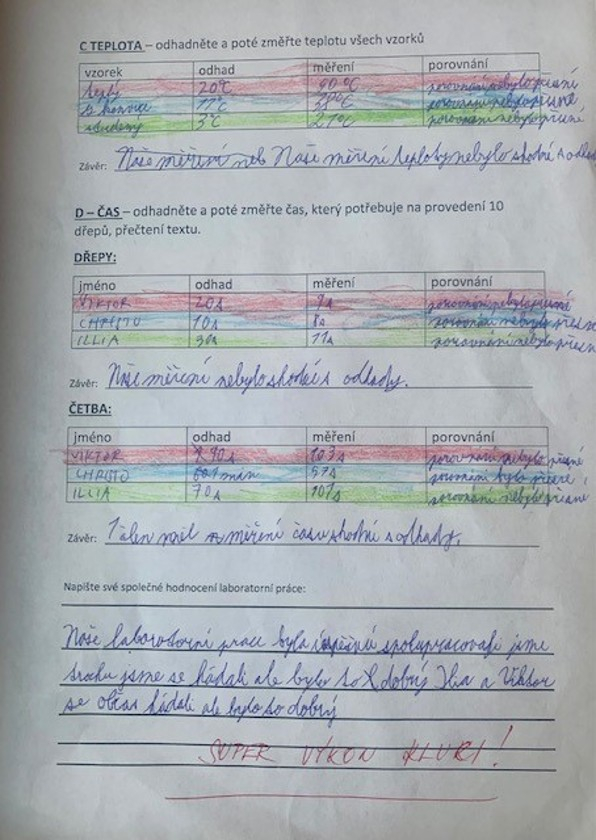 C TEPLOTA – odhadněte a poté změřte teplotu všech vzorků
vzorek odhad měření porovnání
teplý 20°C 90°C porovnání nebylo přesné
z konvice 77°C porovnání nebylo přesné
studený 3°C 21°C porovnání nebylo přesné
Závěr: Naše měření neb Naše měření teploty nebylo shodné s odha
D – ČAS – odhadněte a poté změřte čas, který potřebuje na provedení 10
dřepů, přečtení textu.
DŘEPY:
jméno odhad měření porovnání
VIKTOR 20s 9s porovnání nebylo přesné
CHRISTO 10s 8s porovnání nebylo přesn
ILLIA 30s 11s porovnání nebylo přesn
Závěr: Naše měření nebylo shodné s odhady.
ČETBA:
jméno odhad měření porovnání
VIKTOR 90s 103s porovnání nebylo přesné
CHRISTO min 57s bylo
ILLIA 70s 107s porovnání nebylo přesné
Závěr: 1 člen měl měření času shodné s odhady.
Napište své společné hodnocení laboratorní práce:
Naše laboratorní práce byla úspěšná spolupracovali jsme
trochu jsme se hádali ale bylo to dobrý Ilia a Viktor
se občas hádali ale bylo to dobrý
SUPER VÝKON KLUCI!